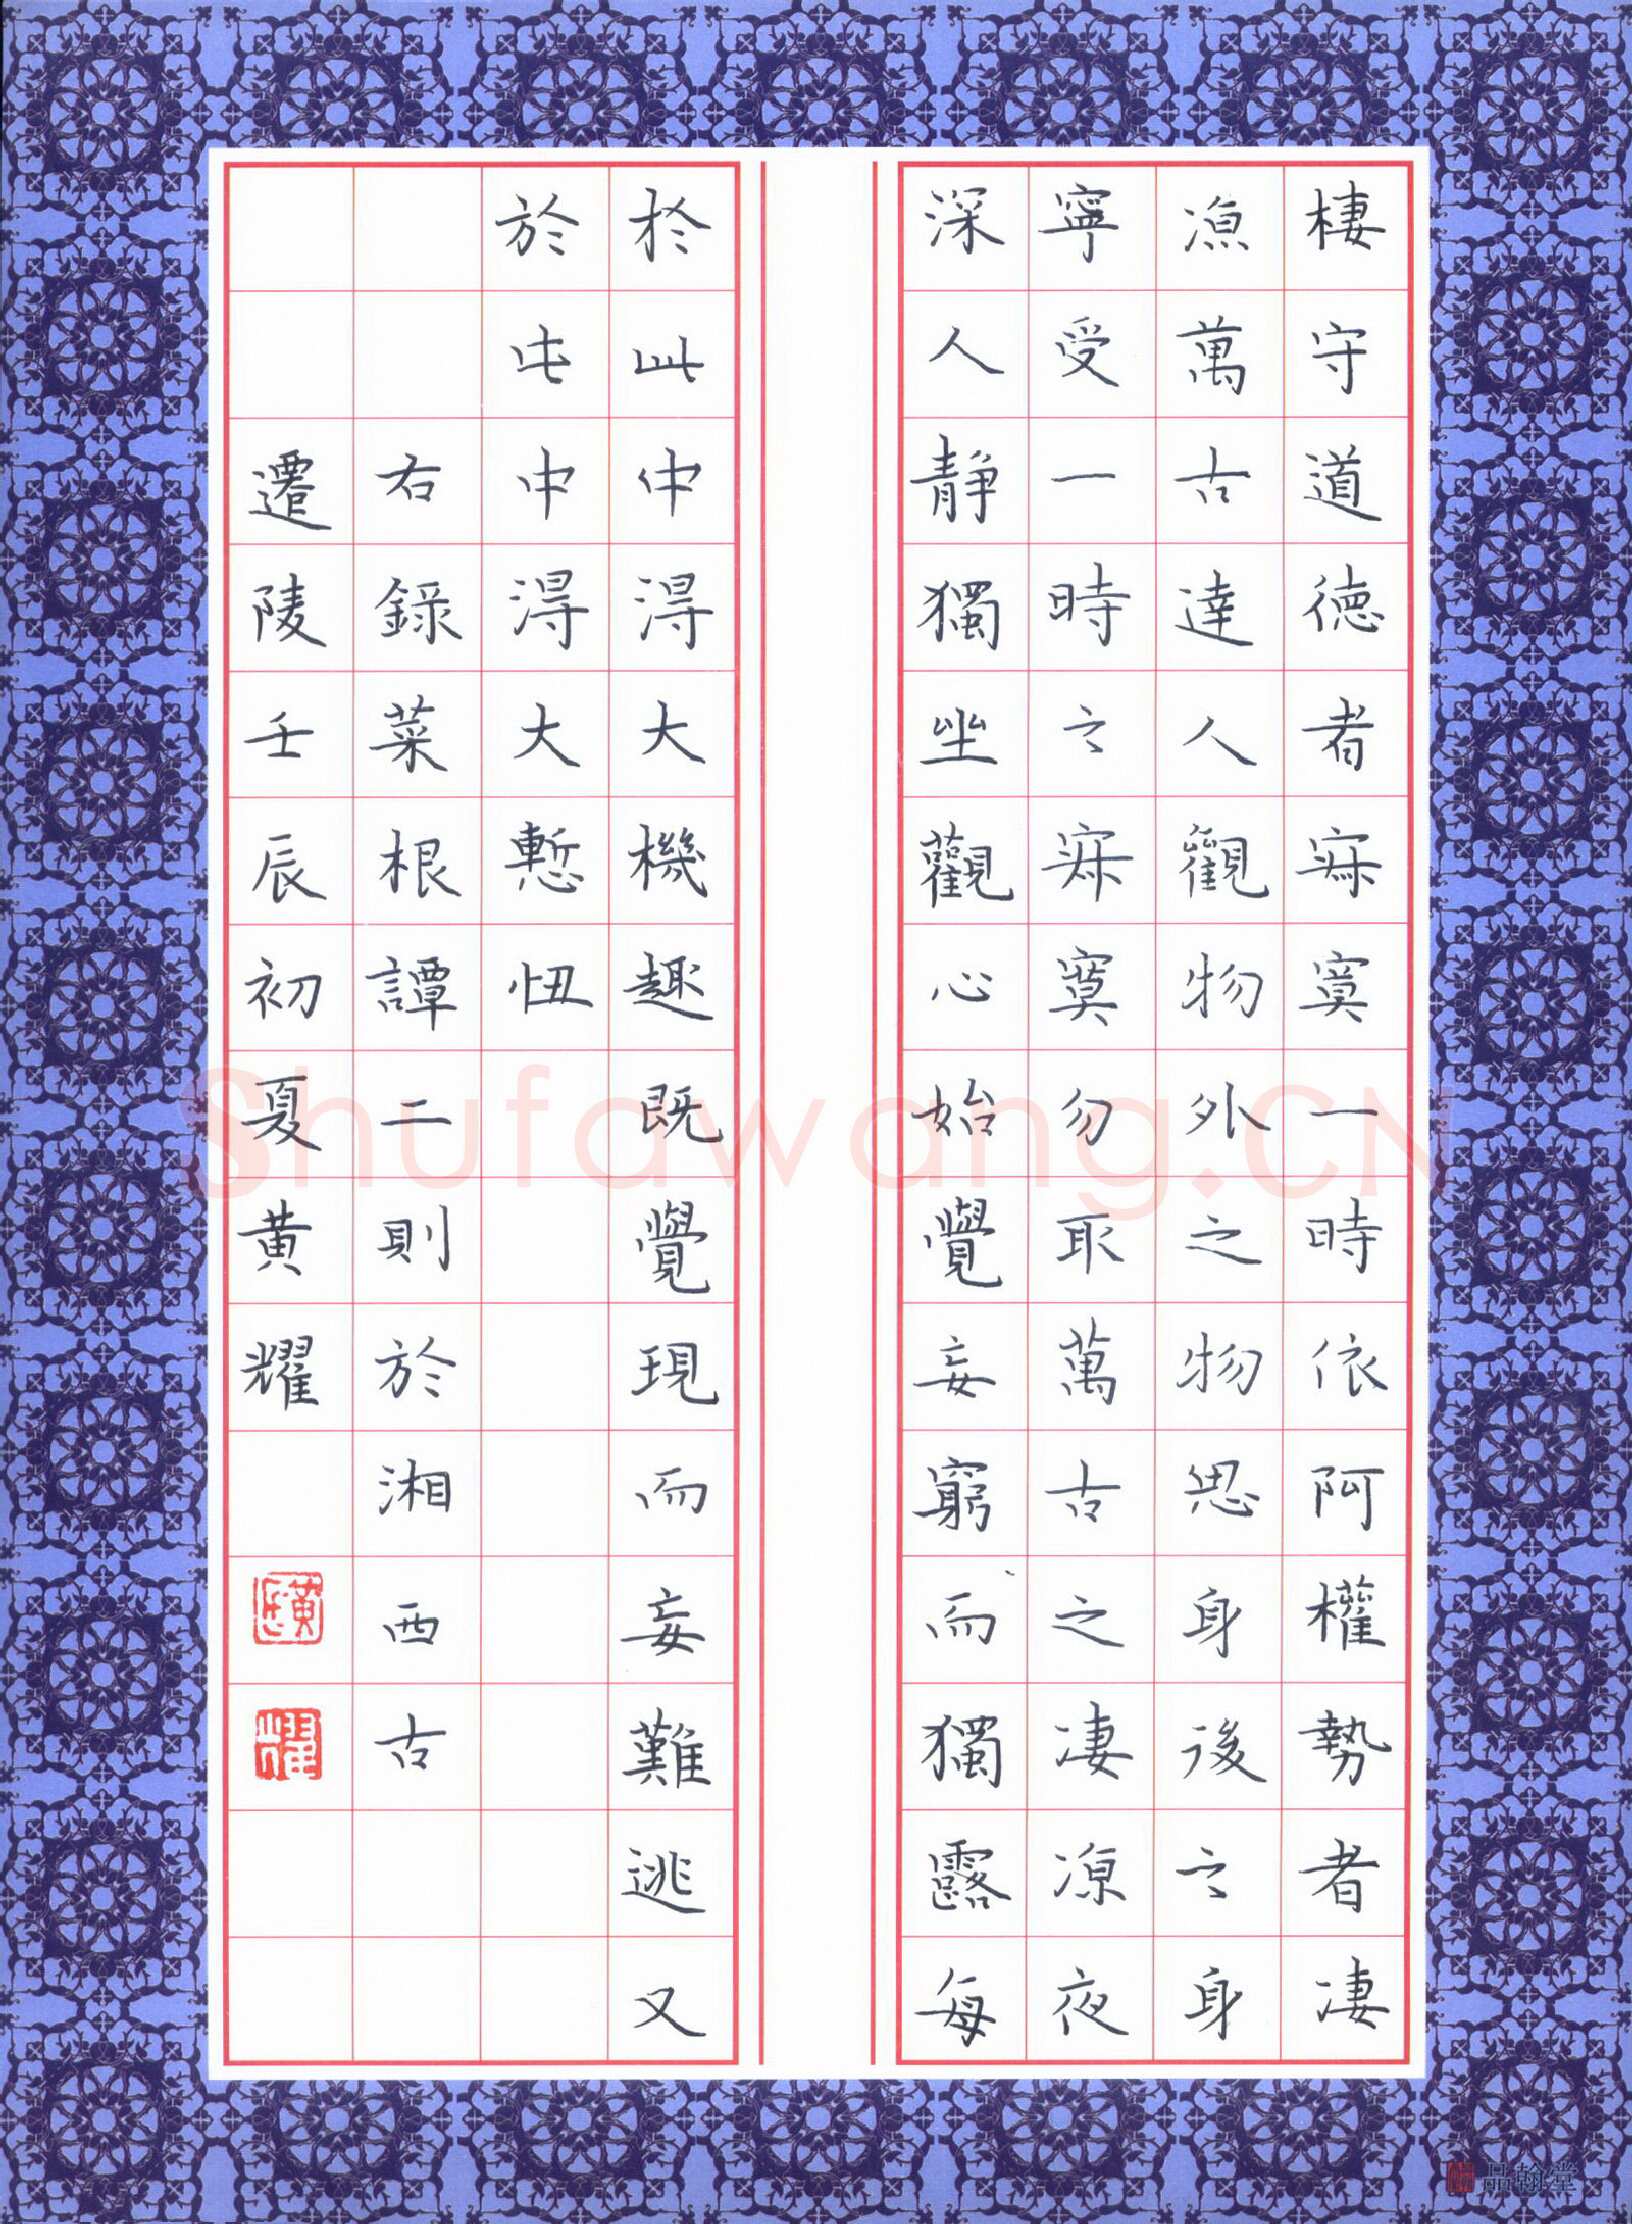 棲守道德者寂寞一時依阿權勢者凄
凉萬古達人觀物外之物思身後之身
寧受一時之寂寞勿取萬古之凄凉夜
深人靜獨坐觀心始覺妄窮而獨露每
於此中得大機趣既覺現而妄難逃又
於此中得大慙忸
右錄菜根譚二則於湘西古
遷陵壬辰初夏黃耀
黃
耀
Shufawang.CN
品翰堂